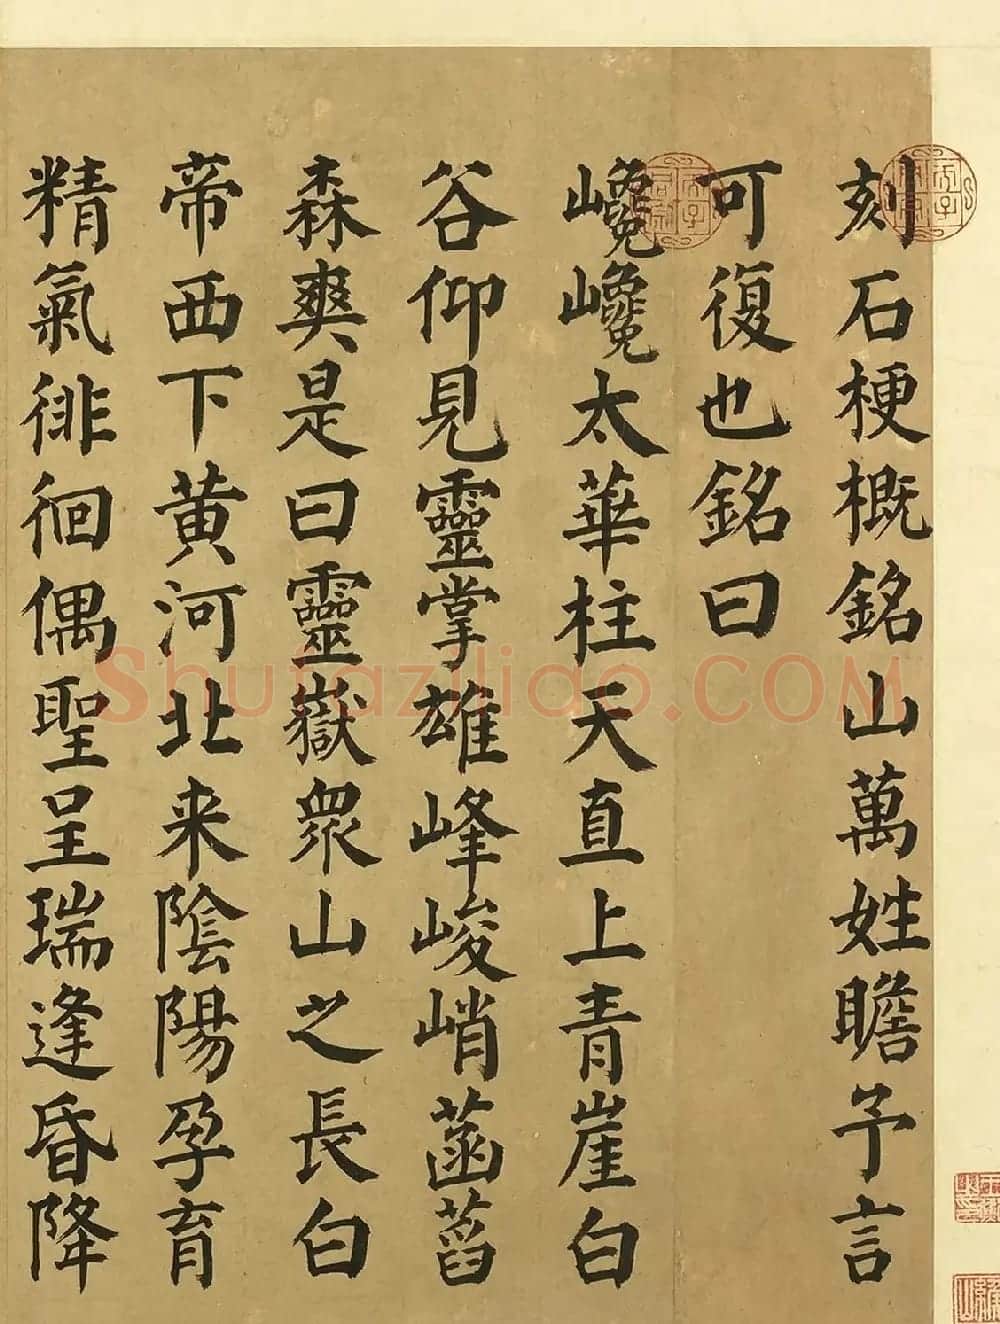 刻石梗概銘山萬姓瞻予言
可復也銘曰
巉巉太華柱天直上青崖白
谷仰見靈掌雄峰峻峭菡萏
森爽是曰靈嶽眾山之長白
帝西下黄河北来陰陽孕育
精氣徘徊偶聖呈瑞逢昏降
Shufaziliao.COM